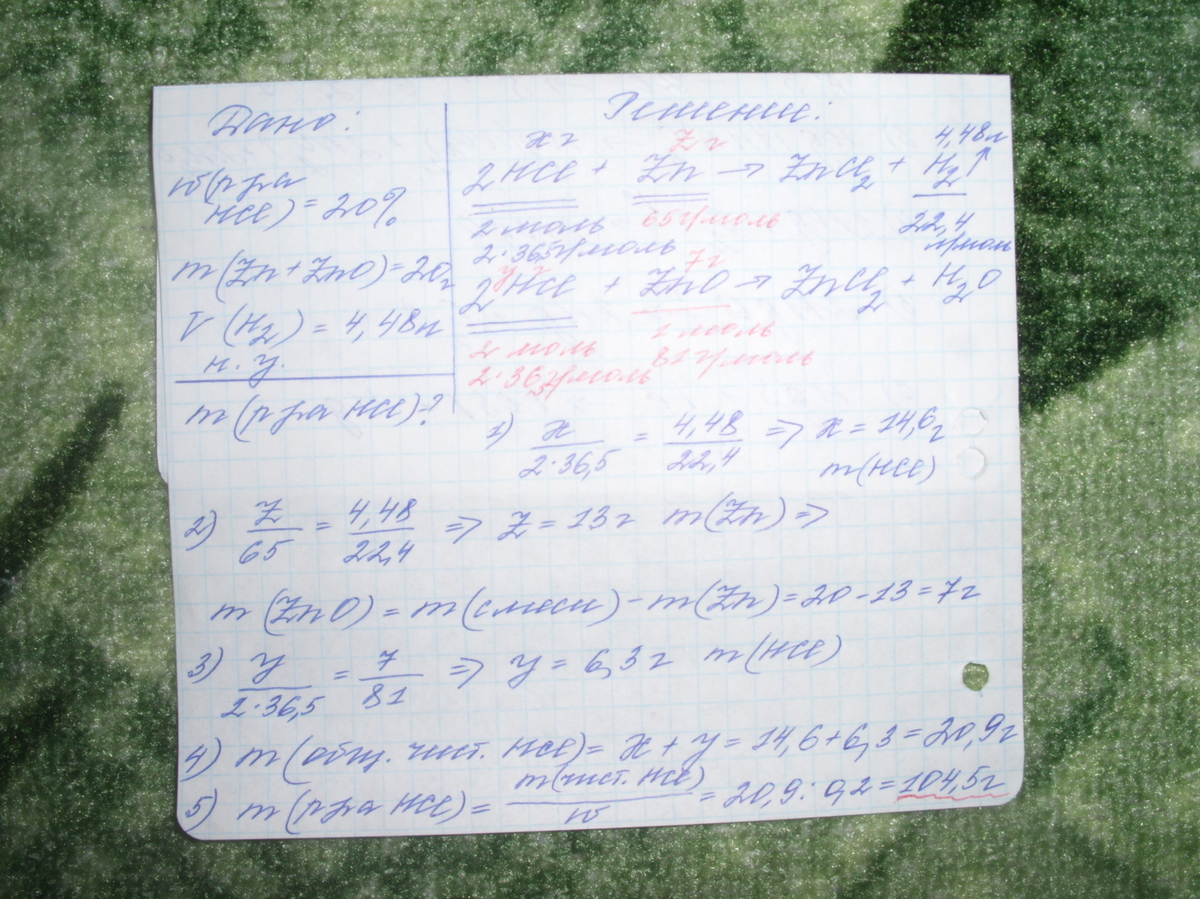 Дано:
w(р-ра
HCl) = 20%
m(Zn + ZnO) = 20г
V(H₂) = 4,48л
н.у.
m(р-ра HCl)-?
Решение:
x г z г 4,48л
2HCl + Zn → ZnCl₂ + H₂↑
2 моль 65г/моль 22,4
2·36,5г/моль л/моль
y г 7г
2HCl + ZnO → ZnCl₂ + H₂O
2 моль 1 моль
2·36,5г/моль 81г/моль
1) x/2·36,5 = 4,48/22,4 => x = 14,6г
m(HCl)
2) z/65 = 4,48/22,4 => z = 13г m(Zn) =>
m(ZnO) = m(смеси) - m(Zn) = 20-13 = 7г
3) y/2·36,5 = 7/81 => y = 6,3г m(HCl)
4) m(общ. чист. HCl) = x + y = 14,6+6,3 = 20,9г
5) m(р-ра HCl) = m(чист. HCl)/w = 20,9 : 0,2 = 104,5г